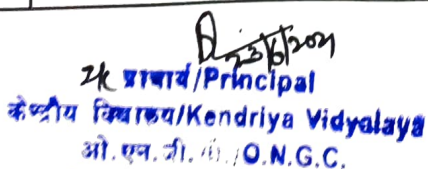 23/6/2021
प्राचार्य/Principal
केन्द्रीय विद्यालय/Kendriya Vidyalaya
ओ.एन.जी. /O.N.G.C.